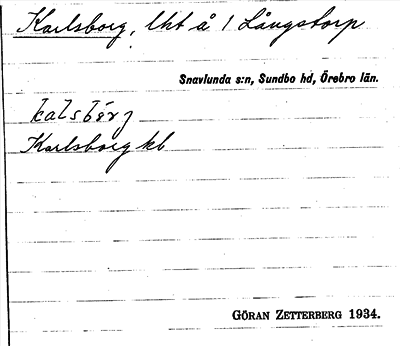 Karlsborg, lht å 1 Långstorp
Snavlunda s:n, Sundbo hd, Örebro län.
kalsbärj
Karlsborg kb
GÖRAN ZETTERBERG 1934.